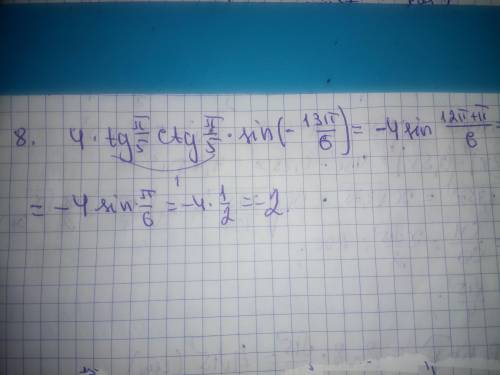 8. 4 · tg π/5 ctg π/5 · sin(- 13π/6) = -4 sin 12π+π/6 =
1
= -4 sin π/6 = -4 · 1/2 = -2.